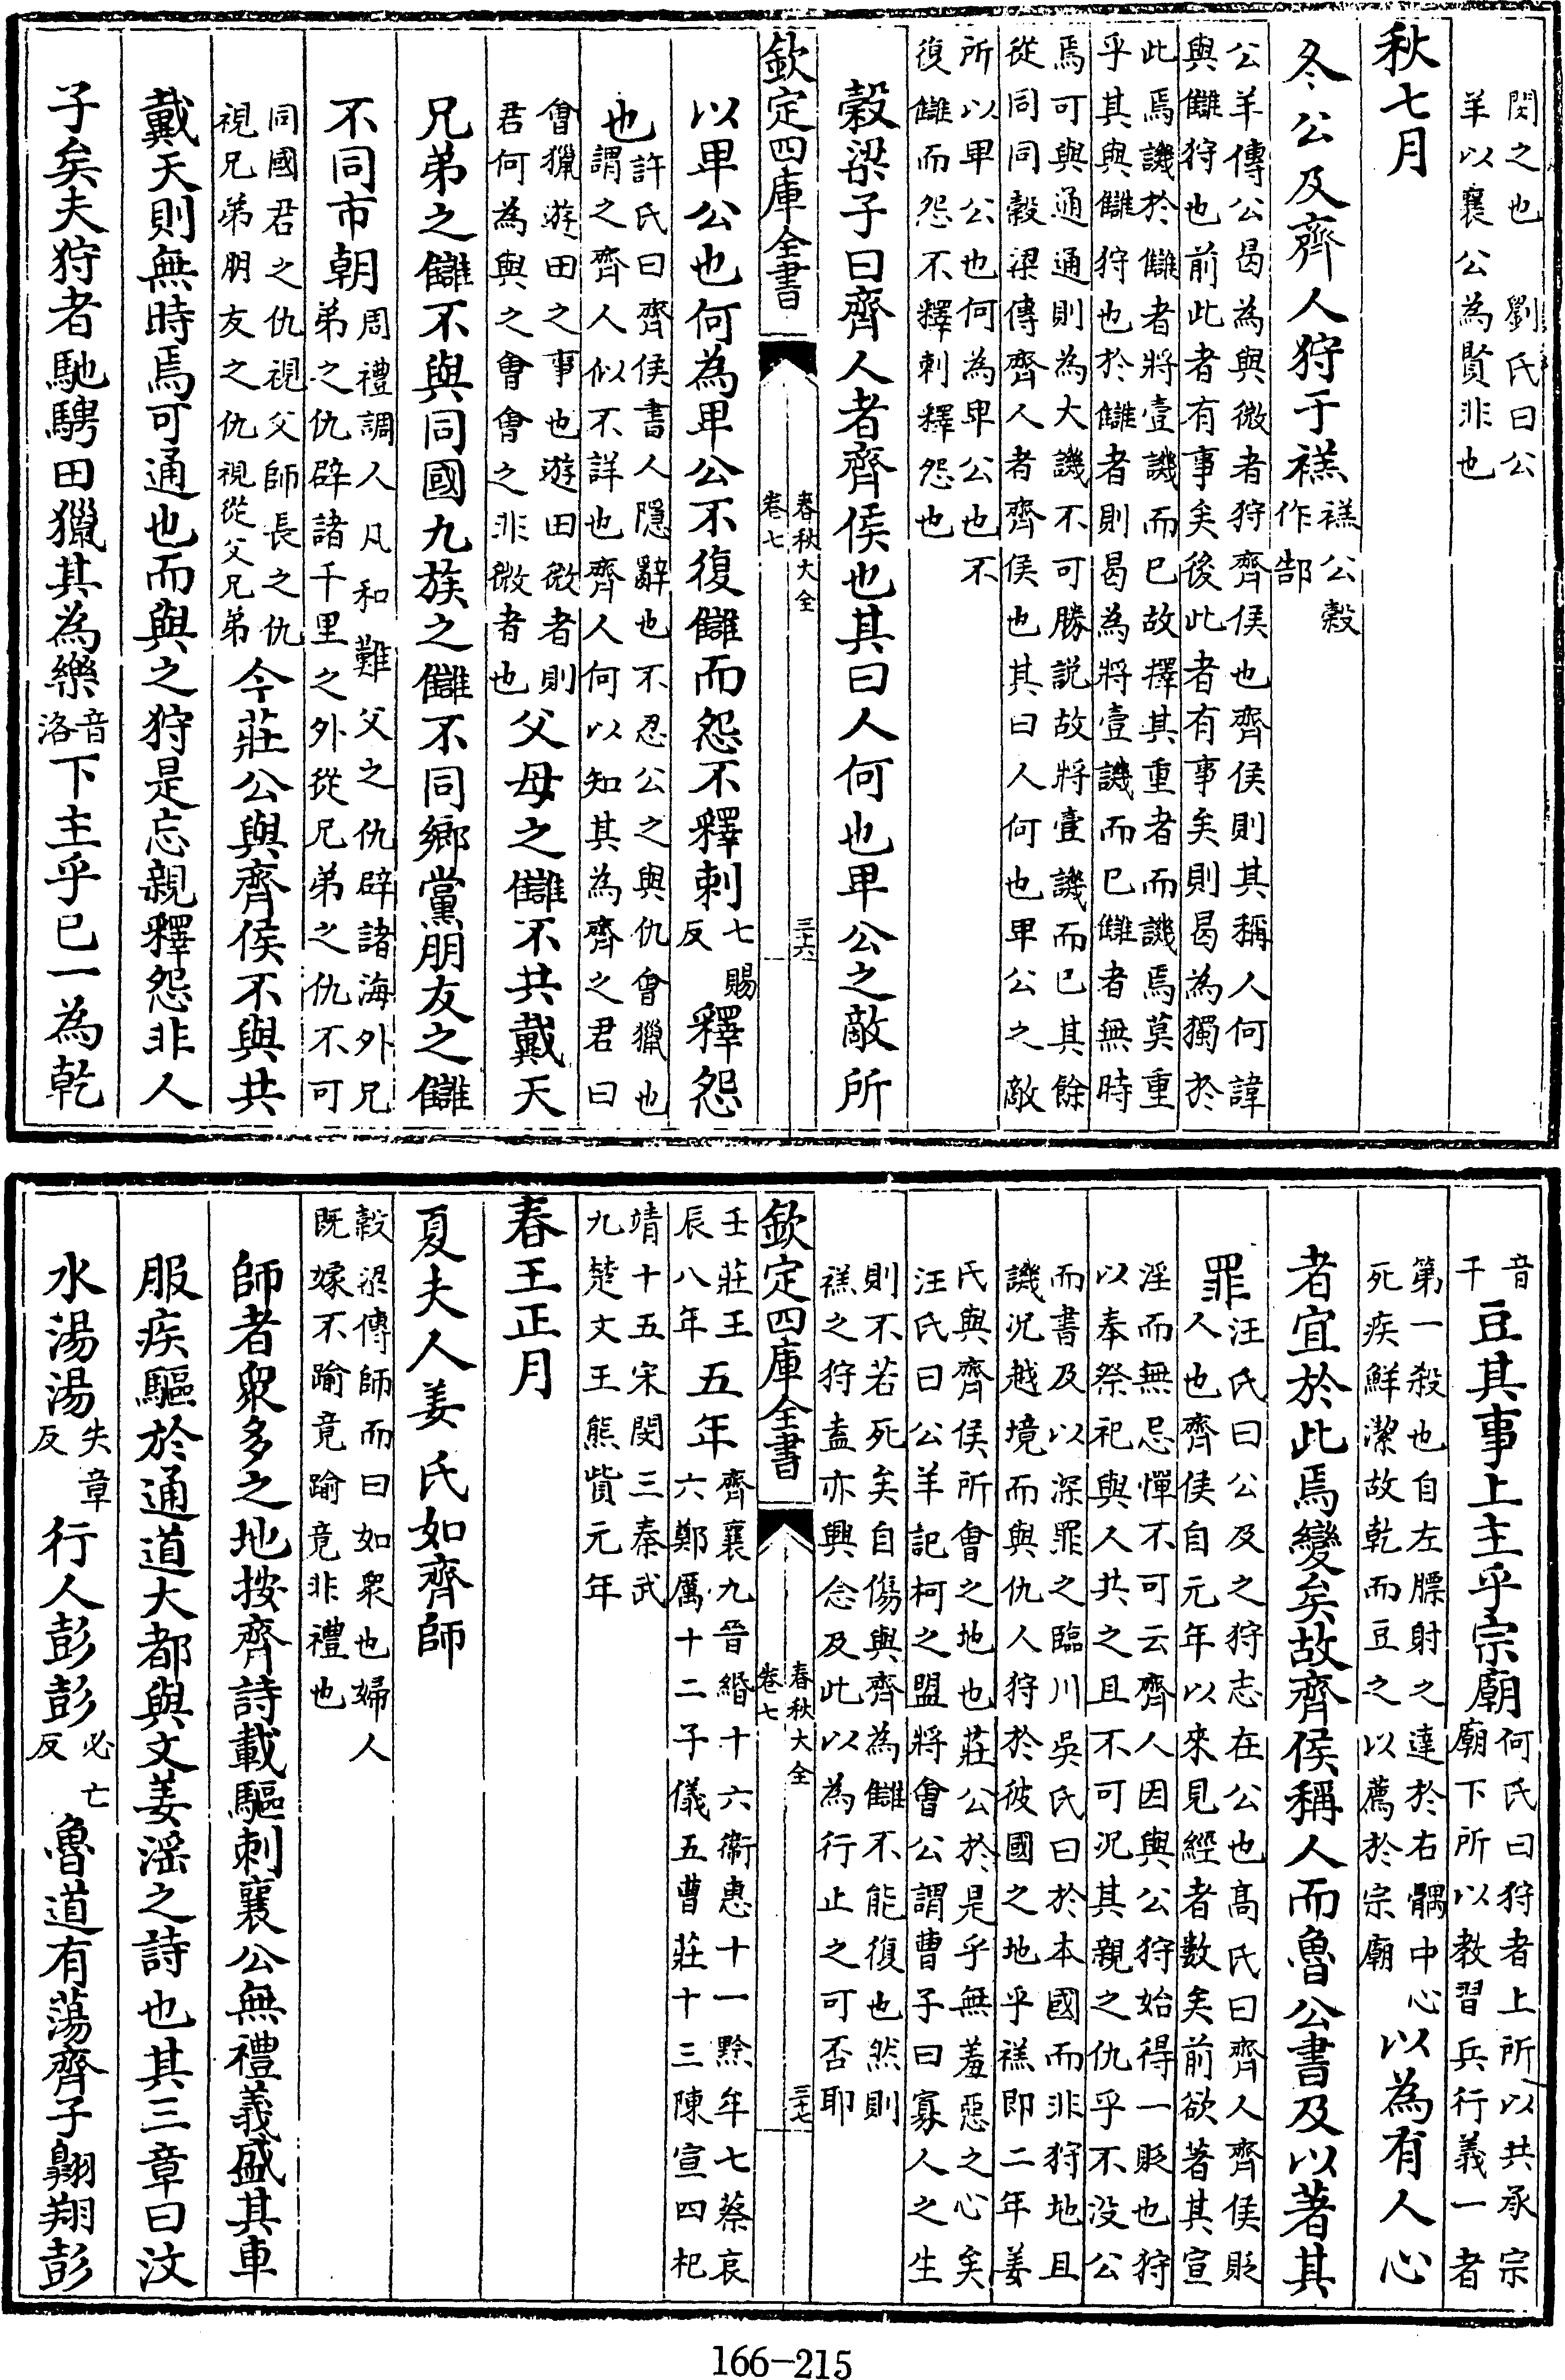 閔之也　劉氏曰公
羊以襄公為賢非也
秋七月
冬公及齊人狩于禚禚公穀作郜
公羊傳公曷為與微者狩齊侯也齊侯則其稱人何諱
與讎狩也前此者有事矣後此者有事矣則曷為獨於
此焉譏於讎者將壹譏而已故擇其重者而譏焉莫重
乎其與讎狩也於讎者則曷為將壹譏而已讎者無時
焉可與通通則為大譏不可勝説故將壹譏而已其餘
從同同穀梁傳齊人者齊侯也其曰人何也卑公之敵
所以卑公也何為卑公也不
復讎而怨不釋刺釋怨也
穀梁子曰齊人者齊侯也其曰人何也卑公之敵所
欽定四庫全書
春秋大全
卷七
三十六
以卑公也何為卑公不復讎而怨不釋刺七賜反釋怨
也許氏曰齊侯書人隱辭也不忍公之與仇會獵也
謂之齊人似不詳也齊人何以知其為齊之君曰
會獵遊田之事也遊田微者則
君何為與之會會之非微者也父母之讎不共戴天
兄弟之讎不與同國九族之讎不同鄉黨朋友之讎
不同市朝周禮調人凡和難父之仇辟諸海外兄
弟之仇辟諸千里之外從兄弟之仇不可
同國君之仇視父師長之仇
視兄弟朋友之仇視從父兄弟今莊公與齊侯不與共
戴天則無時焉可通也而與之狩是忘親釋怨非人
子矣夫狩者馳騁田獵其為樂音洛下主乎已一為乾
音干豆其事上主乎宗廟何氏曰狩者上所以共承宗
廟下所以教習兵行義一者
第一殺也自左膘射之達於右髃中心
死疾鮮潔故乾而豆之以薦於宗廟以為有人心
者宜於此焉變矣故齊侯稱人而魯公書及以著其
罪汪氏曰公及之狩志在公也高氏曰齊人齊侯貶
人也齊侯自元年以來見經者數矣前欲著其宣
淫而無忌憚不可云齊人因與公狩始得一貶也狩
以奉祭祀與人共之且不可況其親之仇乎不没公
而書及以深罪之臨川吳氏曰於本國而非狩地且
譏況越境而與仇人狩於彼國之地乎禚即二年姜
氏與齊侯所會之地也莊公於是乎無羞惡之心矣
汪氏曰公羊記柯之盟將會公謂曹子曰寡人之生
則不若死矣自傷與齊為讎不能復也然則
禚之狩盍亦興念及此以為行止之可否耶
欽定四庫全書
春秋大全
卷七
三十七
壬莊王
辰八年五年齊襄九晉緡十六衛惠十一黔牟七蔡哀
六鄭厲十二子儀五曹莊十三陳宣四杞
靖十五宋閔三秦武
九楚文王熊貲元年
春王正月
夏夫人姜氏如齊師
穀梁傳師而曰如衆也婦人
既嫁不踰竟踰竟非禮也
師者衆多之地按齊詩載驅刺襄公無禮義盛其車
服疾驅於通道大都與文姜淫之詩也其三章曰汶
水湯湯失章反行人彭彭必亡反魯道有蕩齊子翺翔彭
166-215